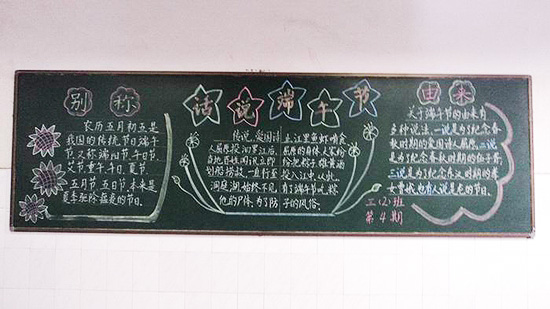 别称
农历五月初五是
我国的传统节日端午
节又称端阳节,午日节,
艾节,重午,午日,夏节.
五月节,五日节,本来是
夏季驱除瘟疫的节日.
话说端午节
传说,爱国诗
人屈原投汨罗江后,
当地百姓闻讯立即
划船捞救,一直行至
洞庭湖,始终不见
他的尸体,为了防
止江里鱼虾啃食
屈原的身体,大家纷
纷把粽子、雄黄酒
投入江中,从此,
有了端午节吃粽
子的风俗.
由来
关于端午节的由来有
多种说法,一说是为了纪念春
秋时期的爱国诗人屈原,二说
是为了纪念春秋时期的伍子胥,
三说是为了纪念东汉时期的孝
女曹娥,也有人说是龙的节日.
三(2)班
第4期